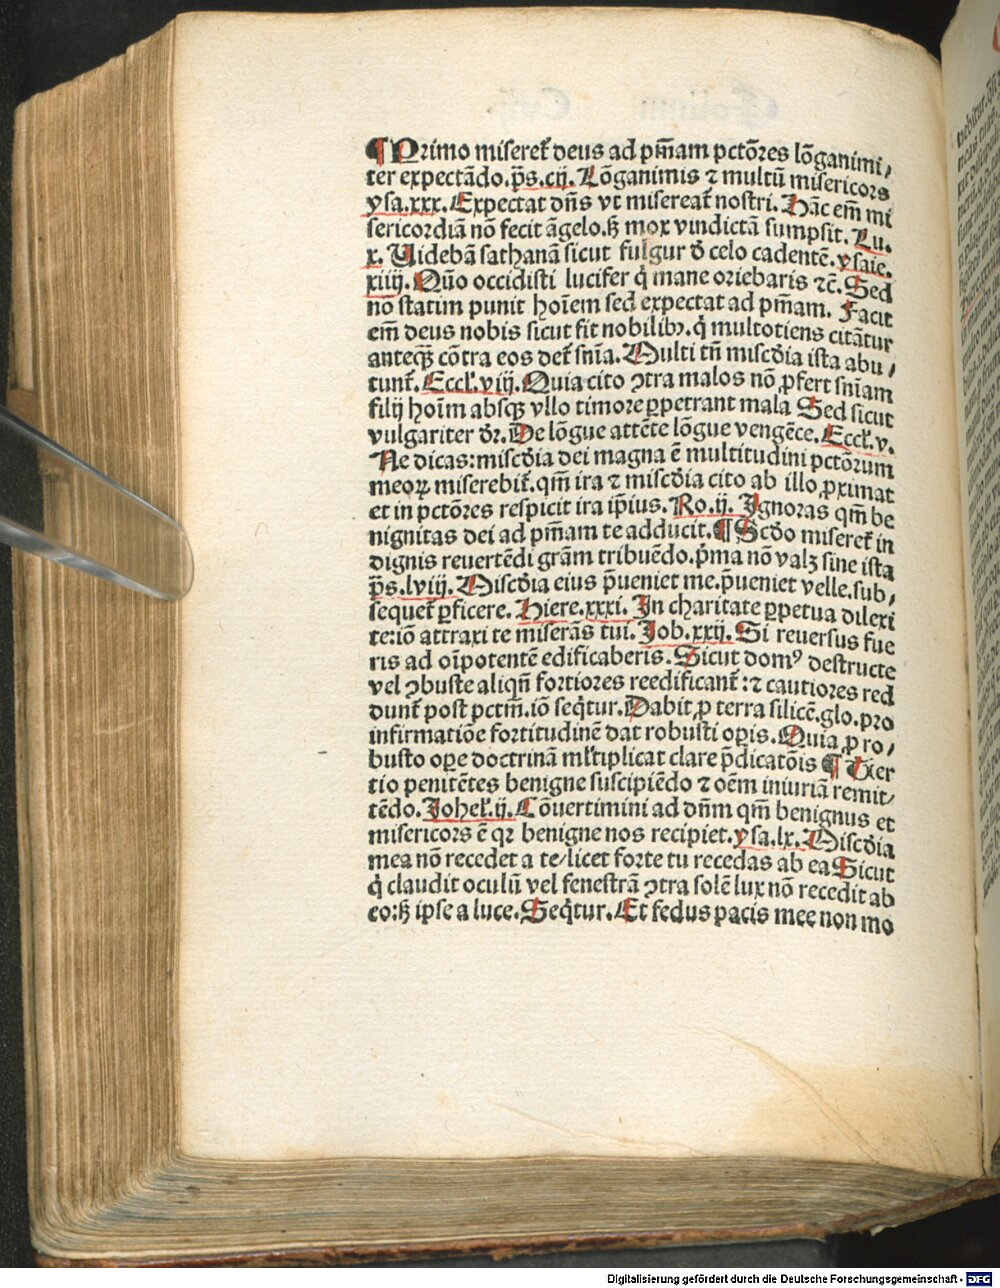 ¶ Primo miseret᷑ deus ad pn̄iam pctōres lōganimi⸗
ter expectādo.p̄s.cij. Lōganimis ⁊ multū misericors
ysa.xxx. Expectat dn̄s vt misereat᷑ nostri. Hāc em̄ mi
sericordiā nō fecit āgelo.sꝫ mox vindictā sumpsit. Lu.
x. Uidebā sathanā sicut fulgur d̄ celo cadentē. ysaie.
xiiij. Quō occidisti lucifer q̇ mane oriebaris ⁊c̄. Sed
nō statim punit hoīem sed expectat ad pn̄iam. Facit
em̄ deus nobis sicut fit nobilibꝫ. q̇ multotiens citātur
anteqꝫ cōtra eos det᷑ sn̄ia. Multi tn̄ miscd̄ia ista abu⸗
tunt᷑. Eccł.viij. Quia cito ꝯtra malos nō ꝓfert sn̄iam
filij hoīm absqꝫ vllo timore ꝑpetrant mala Sed sicut
vulgariter dr̄. De lōgue attēte lōgue vengēce. Eccł.v.
Ne dicas:miscd̄ia dei magna ē multitudini pctōrum
meoꝝ miserebit᷑.qm̄ ira ⁊ miscd̄ia cito ab illo ꝓximat
et in pctōres respicit ira ip̄ius. Ro.ij. Ignoras qm̄ be
nignitas dei ad pn̄iam te adducit. ¶ Scd̄o miseret᷑ in
dignis reuertēdi grām tribuēdo. p̄ma nō valꝫ sine ista
p̄s.lviij. Miscd̄ia eius p̄ueniet me.p̄ueniet velle.sub⸗
sequet᷑ ꝑficere. Hiere.xxxi. In charitate ꝑpetua dilexi
te:iō attraxi te miserās tui. Job.xxij. Si reuersus fue
ris ad oīpotentē edificaberis. Sicut domꝰ destructe
vel ꝯbuste aliqn̄ fortiores reedificant᷑:⁊ cautiores red
dunt᷑ post pctm̄.iō seq̇tur. Dabit ꝓ terra silicē.glo.pro
infirmatiōe fortitudinē dat robusti oꝑis. Quia ꝓ ro⸗
busto oꝑe doctrinā mł̄tiplicat clare p̄dicatōis ¶ Ter
tio penitētes benigne suscipiēdo ⁊ oēm iniuriā remit⸗
tēdo. Joheł.ij. Cōuertimini ad dn̄m qm̄ benignus et
misericors ē qꝛ benigne nos recipiet. ysa.lx. Miscd̄ia
mea nō recedet a te/licet forte tu recedas ab ea Sicut
q̇ claudit oculū vel fenestrā ꝯtra solē lux nō recedit ab
eo:sꝫ ipse a luce. Seq̇tur. Et fedus pacis mee non mo
Digitalisierung gefördert durch die Deutsche Forschungsgemeinschaft - DFG